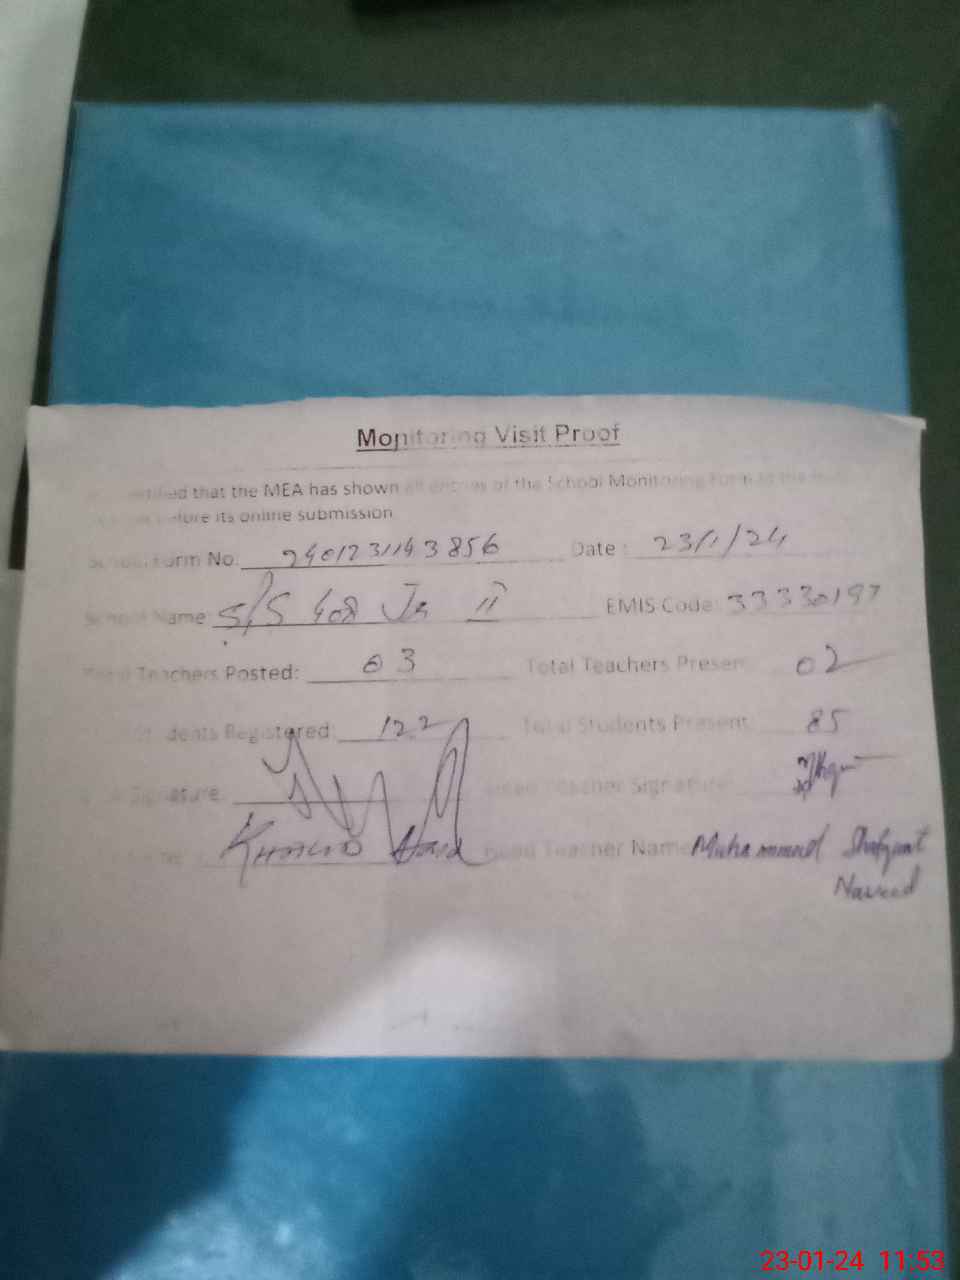 Monitoring Visit Proof
that the MEA has shown all entries of the School Monitoring Form to the
before its online submission
School Form No. 2401231143856 Date : 23/1/24
School Name: S/S 408 JB II EMIS Code: 33330197
Total Teachers Posted: 03 Total Teachers Present 02
Students Registered: 122 Total Students Present: 85
Signature: Head Teacher Signature:
Khalid Head Teacher Name Muhammad Shafqat
Naveed
23-01-24 11:53